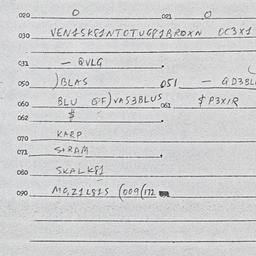 020 0 021 0
030 VEN1SK81NTOTUGP1BROXN OC3X1
031 - QVLG
050 )BLAS 051 - GD3BL
060 BLU GF)VAS3BLUS 061 $ P3X1R
062 $
070 KARP
071 S+RAM
080 SKALK81
090 MO,Z1L81S (009(172